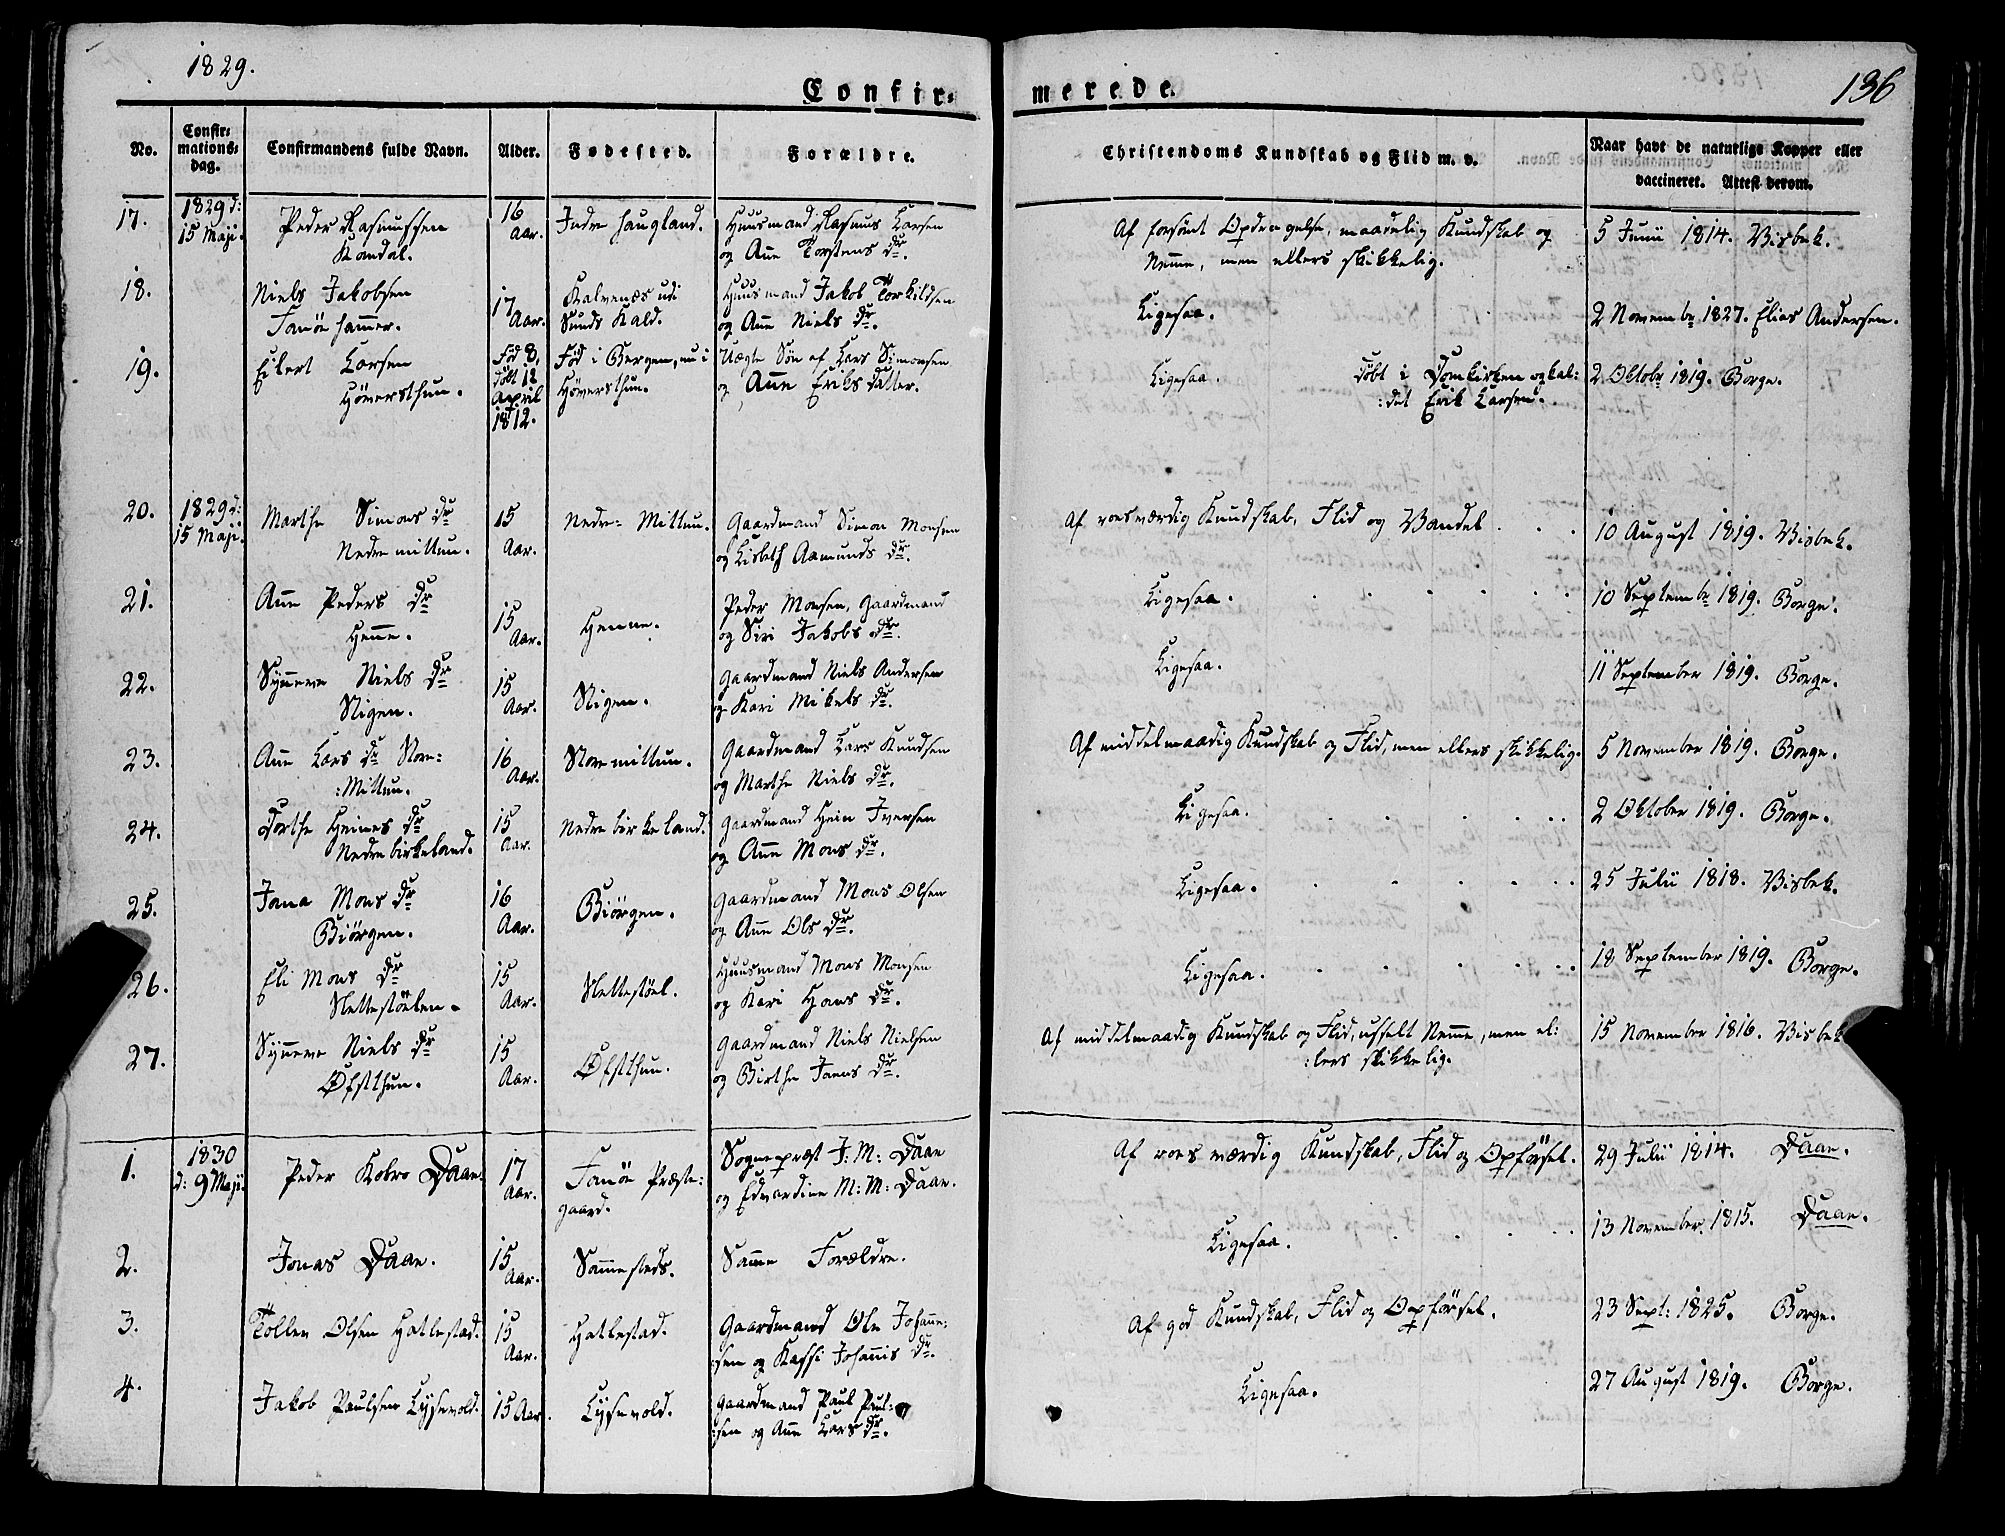 1829.
136
Confir=
merede
No.
Confir=
mations=
dag.
Confirmandens fulde Navn.
Alder.
Fødested.
Forældre.
Christendoms Kundskab og Flid m. v.
Naar havt de naturlige Kopper eller
vaccineret. Attest derom.
17.
1829 d:
15 Maji.
Peder Rasmussen
Kandal.
16
Aar.
Indre Haugland.
Huusmand Rasmus Larsen
og Ane Torstens Dr.
Af forsømt Opdragelse, maadelig Kundskab og
Nemme, men ellers skikkelig.
5 Junii 1814. Visbek.
18.
Niels Jakobsen
Fanöe hammer.
17
Aar.
Kalvenæs udi
Sunds Kald.
Huusmand Jakob Torkildsen
og Ane Niels Dr.
Ligesaa.
2 Novembr 1827. Elias Andersen.
19.
Eilert Larsen
Höversthun.
Fød 8,
döbt 12
April
1812.
Fød i Bergen, nu i
Höversthun.
Uægte Søn af Lars Simonsen
og Ane Eriks Datter.
Ligesaa.
Döbt i Domkirken og kal:
:det Erik Larsen.
2 Oktobr 1819. Borge.
20.
1829 d:
15 Maji.
Marthe Simons Dr
Nedre mittun.
15
Aar.
Nedre= Mittun.
Gaardmand Simon Monsen
og Lisbeth Aamunds Dr.
Af roesværdig Kundskab, Flid og Vandel
10 August 1819. Visbek.
21.
Ane Peders Dr
Henne.
15
Aar.
Henne.
Peder Monsen, Gaardmand
og Siri Jakobs Dr.
Ligesaa.
10 Septembr 1819. Borge.
22.
Synneve Niels Dr
Stigen.
15
Aar.
Stigen.
Gaardmand Niels Andersen
og Kari Mikels Dr.
Ligesaa.
11 September 1819. Borge.
23.
Ane Lars Dr Store=
:Mittun.
16
Aar.
Store mittun.
Gaardmand Lars Knudsen
og Marthe Niels Dr.
Af middelmaadig Kundskab og Flid, men ellers skikkelig.
5 November 1819. Borge.
24.
Dorthe Heines Dr
Nedre birkeland.
15
Aar.
Nedre birkeland.
Gaardmand Hein Iversen
og Ane Mons Dr.
Ligesaa.
2 Oktober 1819. Borge.
25.
Jana Mons Dr
Biörgen.
16
Aar.
Biörgen.
Gaardmand Mons Olsen
og Ane Ols Dr.
Ligesaa.
25 Julii 1818. Visbek.
26.
Eli Mons Dr
Slettestöelen.
15
Aar.
Slettestöel.
Huusmand Mons Monsen
og Kari Hans Dr.
Ligesaa.
18 September 1819. Borge.
27.
Synneve Niels Dr
Öfstthun.
15
Aar.
Öfstthun.
Gaardmand Niels Nielsen
og Birthe Jaens Dr.
Af middelmaadig Kundskab og Flid, usselt Nemme, men el:
:lers skikkelig.
15 November 1816. Visbek
1.
1830
d: 9 Maji.
Peder Kobro Daae.
17
Aar.
Fanöe Præste:
gaard.
Sognepræst J: M: Daae
og Edvardine M: M: Daae.
Af roesværdig Kundskab, Flid og Opförsel.
29 Julii 1814. Daae.
2.
Jonas Daae.
15
Aar.
Sammesteds.
Samme Forældre.
Ligesaa.
13 November 1815. Daae.
3.
Tollev Olsen Hatlestad.
15
Aar.
Hatlestad.
Gaardmand Ole Johanne:
:sen og Kassi Johannis Dr.
Af god Kundskab, Flid og Opförsel.
23 Sept: 1825. Borge.
4.
Jakob Paulsen Lysevold.
15 Aar.
Lysevold.
Gaardmand Paul Paul:
:sen og Ane Lars Dr.
Ligesaa.
27 August 1819. Borge.